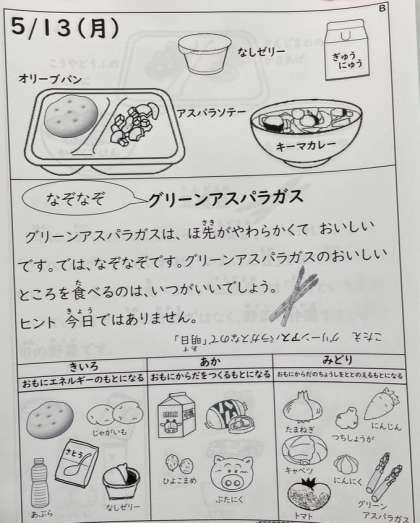 B
5/13(月)
なしゼリー
ぎゅう
にゅう
オリーブパン
アスパラソテー
キーマカレー
なぞなぞ
グリーンアスパラガス
グリーンアスパラガスは、ほ先がやわらかくて おいしい
さき
です。では、なぞなぞです。グリーンアスパラガスのおいしい
ところを食べるのは、いつがいいでしょう。
た
ヒント 今日ではありません。
きょう
こたえ グリーンアスパラガスなので「明日」
あす
きいろ
おもにエネルギーのもとになる
あか
おもにからだをつくるもとになる
みどり
おもにからだのちょうしをととのえるもとになる
じゃがいも
さとう
あぶら
なしゼリー
ひよこまめ
ぶたにく
たまねぎ
つちしょうが
にんじん
キャベツ
にんにく
トマト
グリーン
アスパラガス